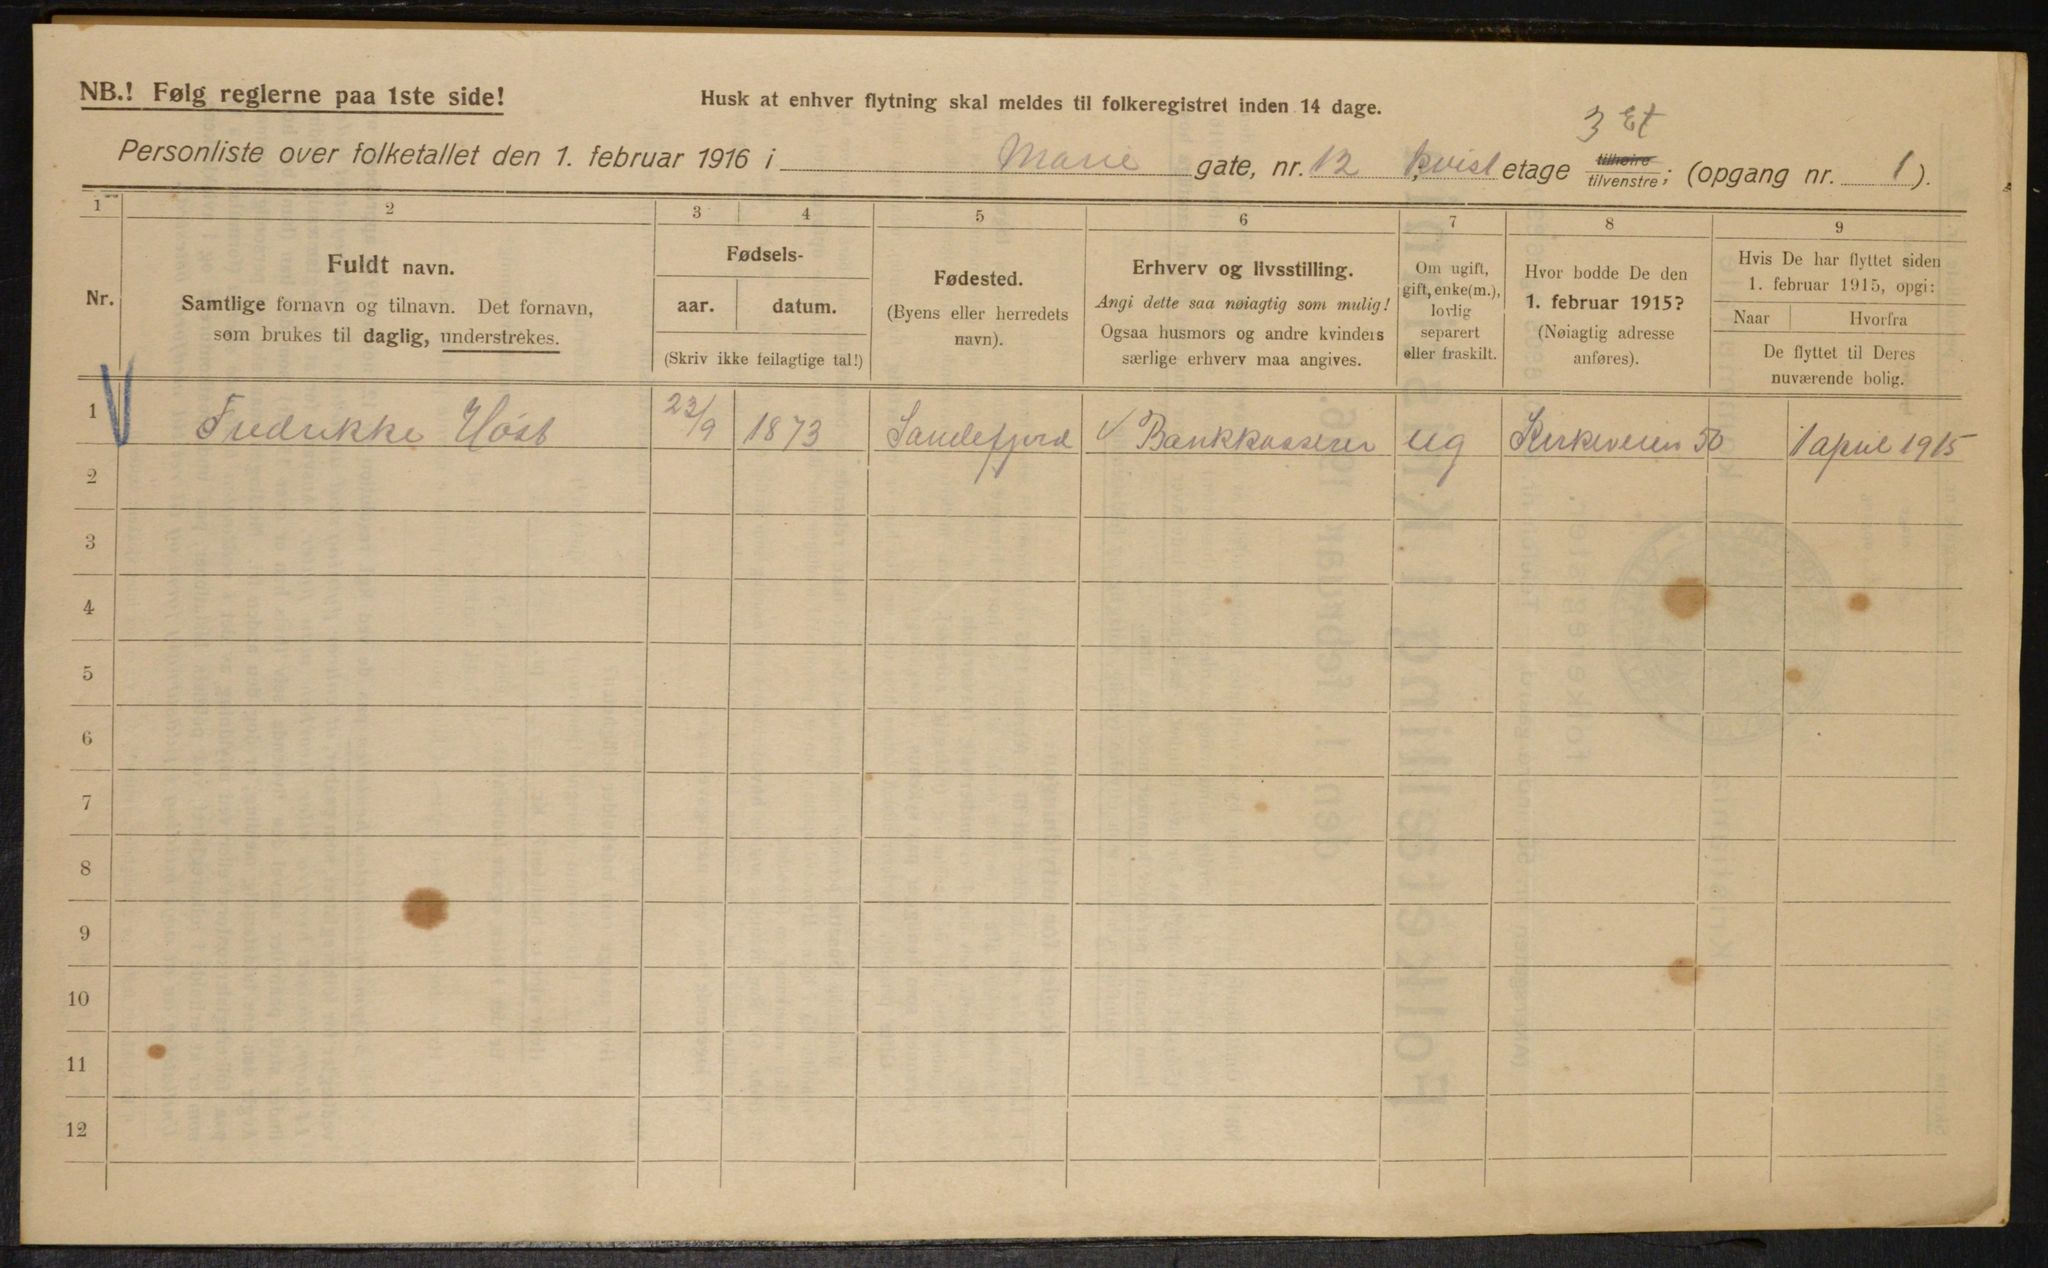 NB.! Følg reglerne paa 1ste side!
Husk at enhver flytning skal meldes til folkeregistret inden 14 dage.
3 Et
Personliste over folketallet den 1. februar 1916 i Marie gate, nr. 12 kvist etage tilhøire tilvenstre; (opgang nr. 1).
1 2 3 4 5 6 7 8 9
Nr.
Fuldt navn.
Samtlige fornavn og tilnavn. Det fornavn,
som brukes til daglig, understrekes.
Fødsels-
aar. datum.
(Skriv ikke feilagtige tal!)
Fødested.
(Byens eller herredets
navn).
Erhverv og livsstilling.
Angi dette saa nøiagtig som mulig!
Ogsaa husmors og andre kvinders
særlige erhverv maa angives.
Om ugift,
gift, enke(m.),
lovlig
separert
eller fraskilt.
Hvor bodde De den
1. februar 1915?
(Nøiagtig adresse
anføres).
Hvis De har flyttet siden
1. februar 1915, opgi:
Naar Hvorfra
De flyttet til Deres
nuværende bolig.
1 Fredrikke Høst 23/9 1873 Sandefjord Bankkasserer ug Kirkeveien 50 1 april 1915
2
3
4
5
6
7
8
9
10
11
12